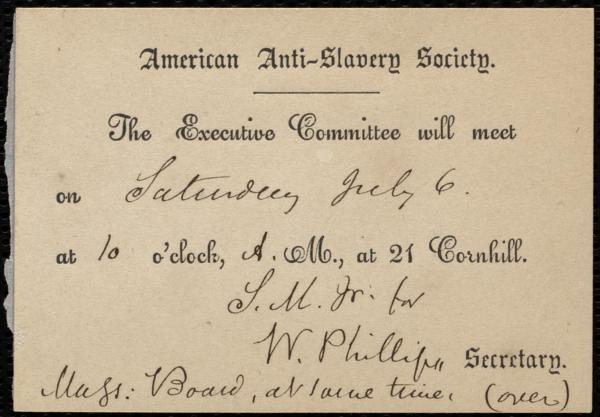 American Anti-Slavery Society.
The Executive Committee will meet
on Saturday July 6.
at 10 o'clock, A. M., at 21 Cornhill.
S. M. Jr. for
W. Phillips, Secretary.
Mass: Board, at same time. (over)